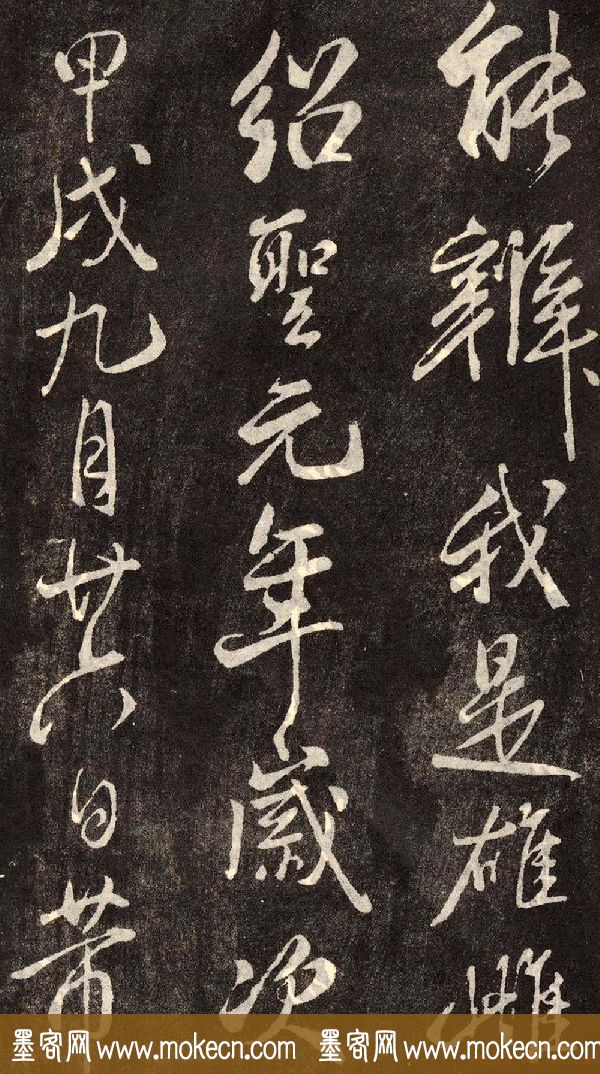 能辨我是雄雌
紹聖元年歲次
甲戌九月廿六日芾
墨客网 www.mokecn.com 墨客网 www.mokecn.com